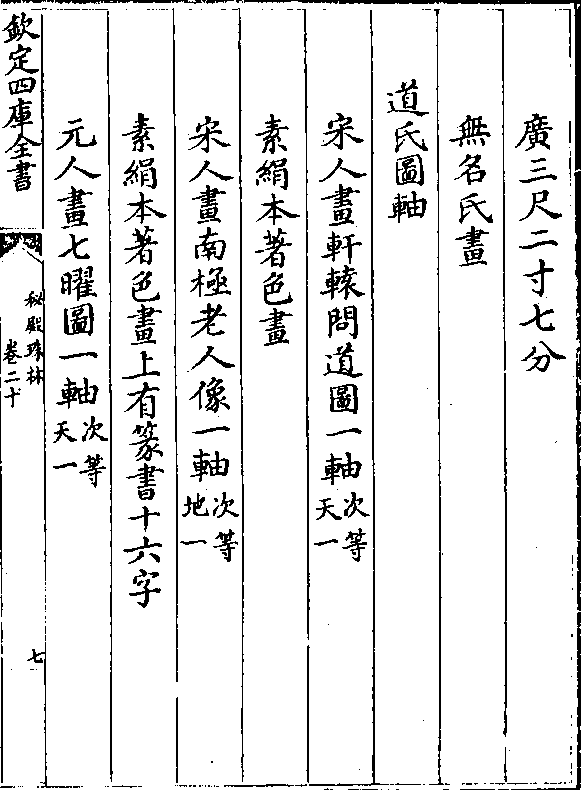 廣三尺二寸七分
無名氏畫
道氏圖軸
宋人畫軒轅問道圖一軸次等天一
素絹本著色畫
宋人畫南極老人像一軸次等地一
素絹本著色畫上有篆書十六字
元人畫七曜圖一軸次等天一
欽定四庫全書
秘殿珠林
卷二十
七